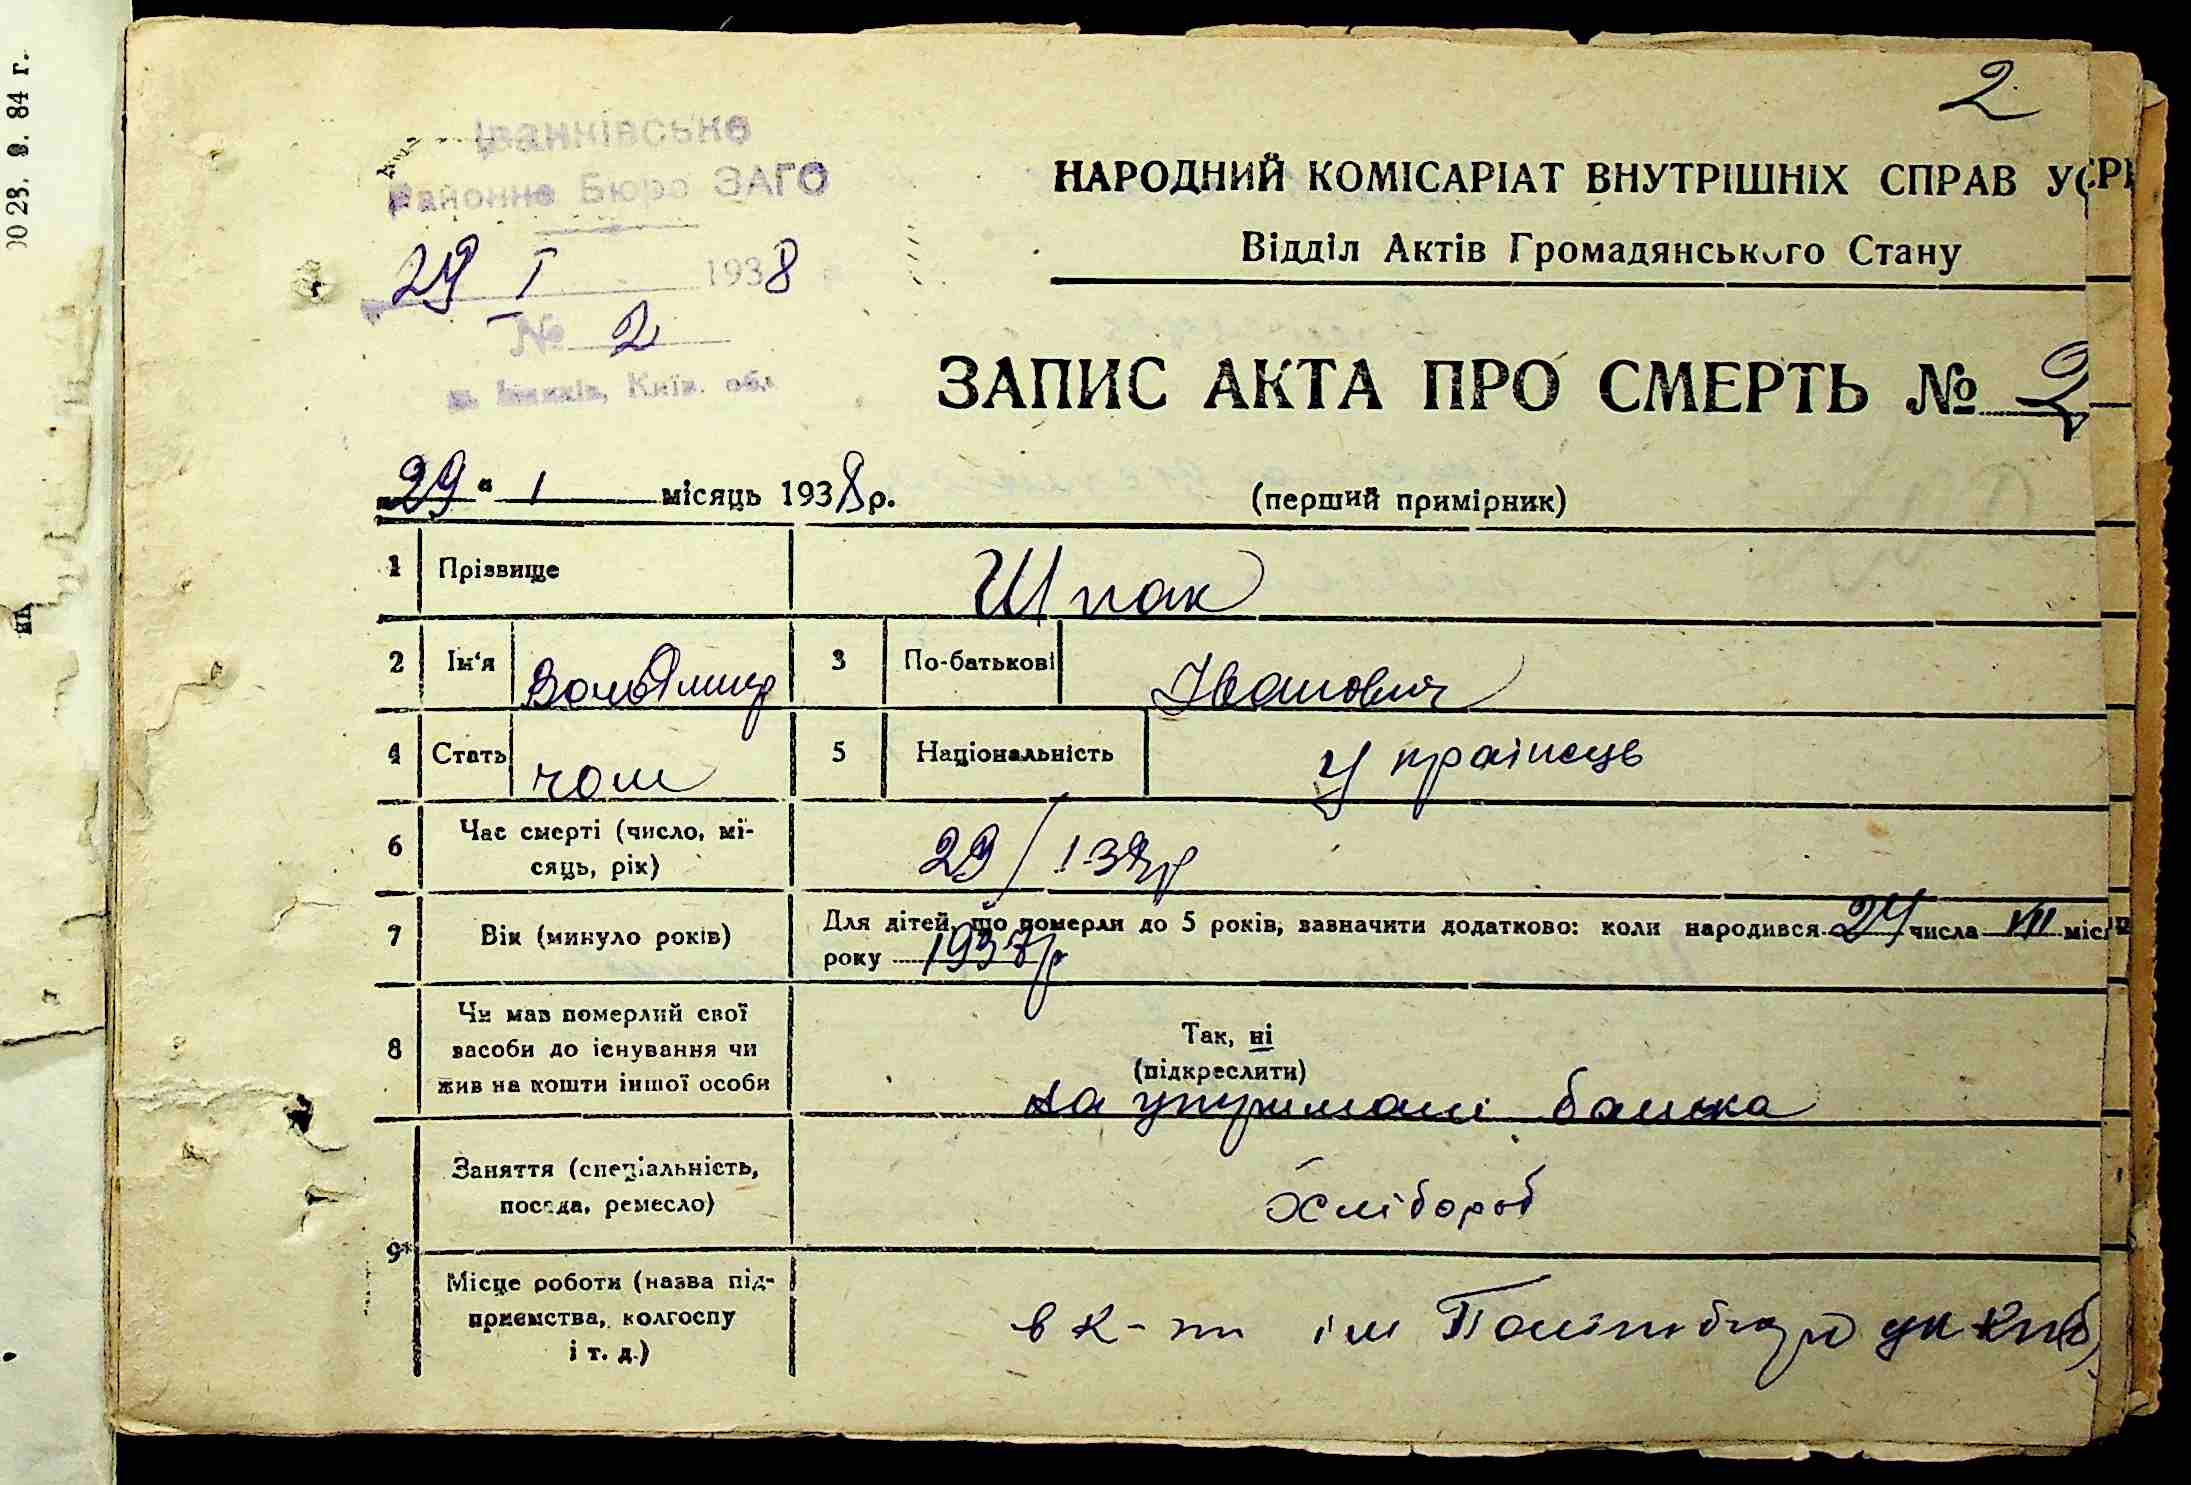 2
Іванківське
Районне Бюро ЗАГС
29 I 1938
№ 2
м. Іванків, Київ. обл
НАРОДНИЙ КОМІСАРІАТ ВНУТРІШНІХ СПРАВ УСРР
Відділ Актів Громадянського Стану
ЗАПИС АКТА ПРО СМЕРТЬ № 2
29 " 1 місяць 1938 р.
(перший примірник)
1 Прізвище Шпак
2 Ім'я Володимир 3 По-батькові Іванович
4 Стать чол 5 Національність Українець
6 Час смерті (число, мі-
сяць, рік) 29/1-38р
7 Вік (минуло років) Для дітей, що померли до 5 років, зазначити додатково: коли народився 24 числа VII міс
року 1937р
8 Чи мав померлий свої
засоби до існування чи
жив на кошти іншої особи
Так, ні
(підкреслити)
на утримані батька
9* Заняття (спеціальність,
посада, ремесло) Хлібороб
Місце роботи (назва під-
приємства, колгоспу
і т. д.) в к-пі ім Політбюро цк кп(б)
00 28. 8. 84 г.